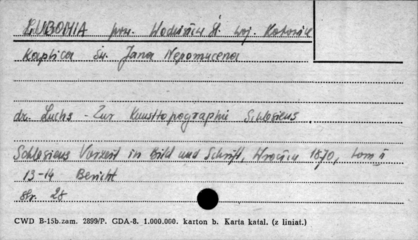 ŁUBOMIA pow. Wodzisław Śl. woj. Katowice
Kaplica św. Jana Nepomucena
dr. Luchs - Zur Kunsttopographie Schlesiens.
Schlesiens Vorzeit in Bild und Schrift, Wrocław 1870, tom II
13-14 Bericht
str. 28
CWD B-15b. zam. 2899/P. GDA-8. 1.000.000. karton b. Karta katal. (z liniat.)